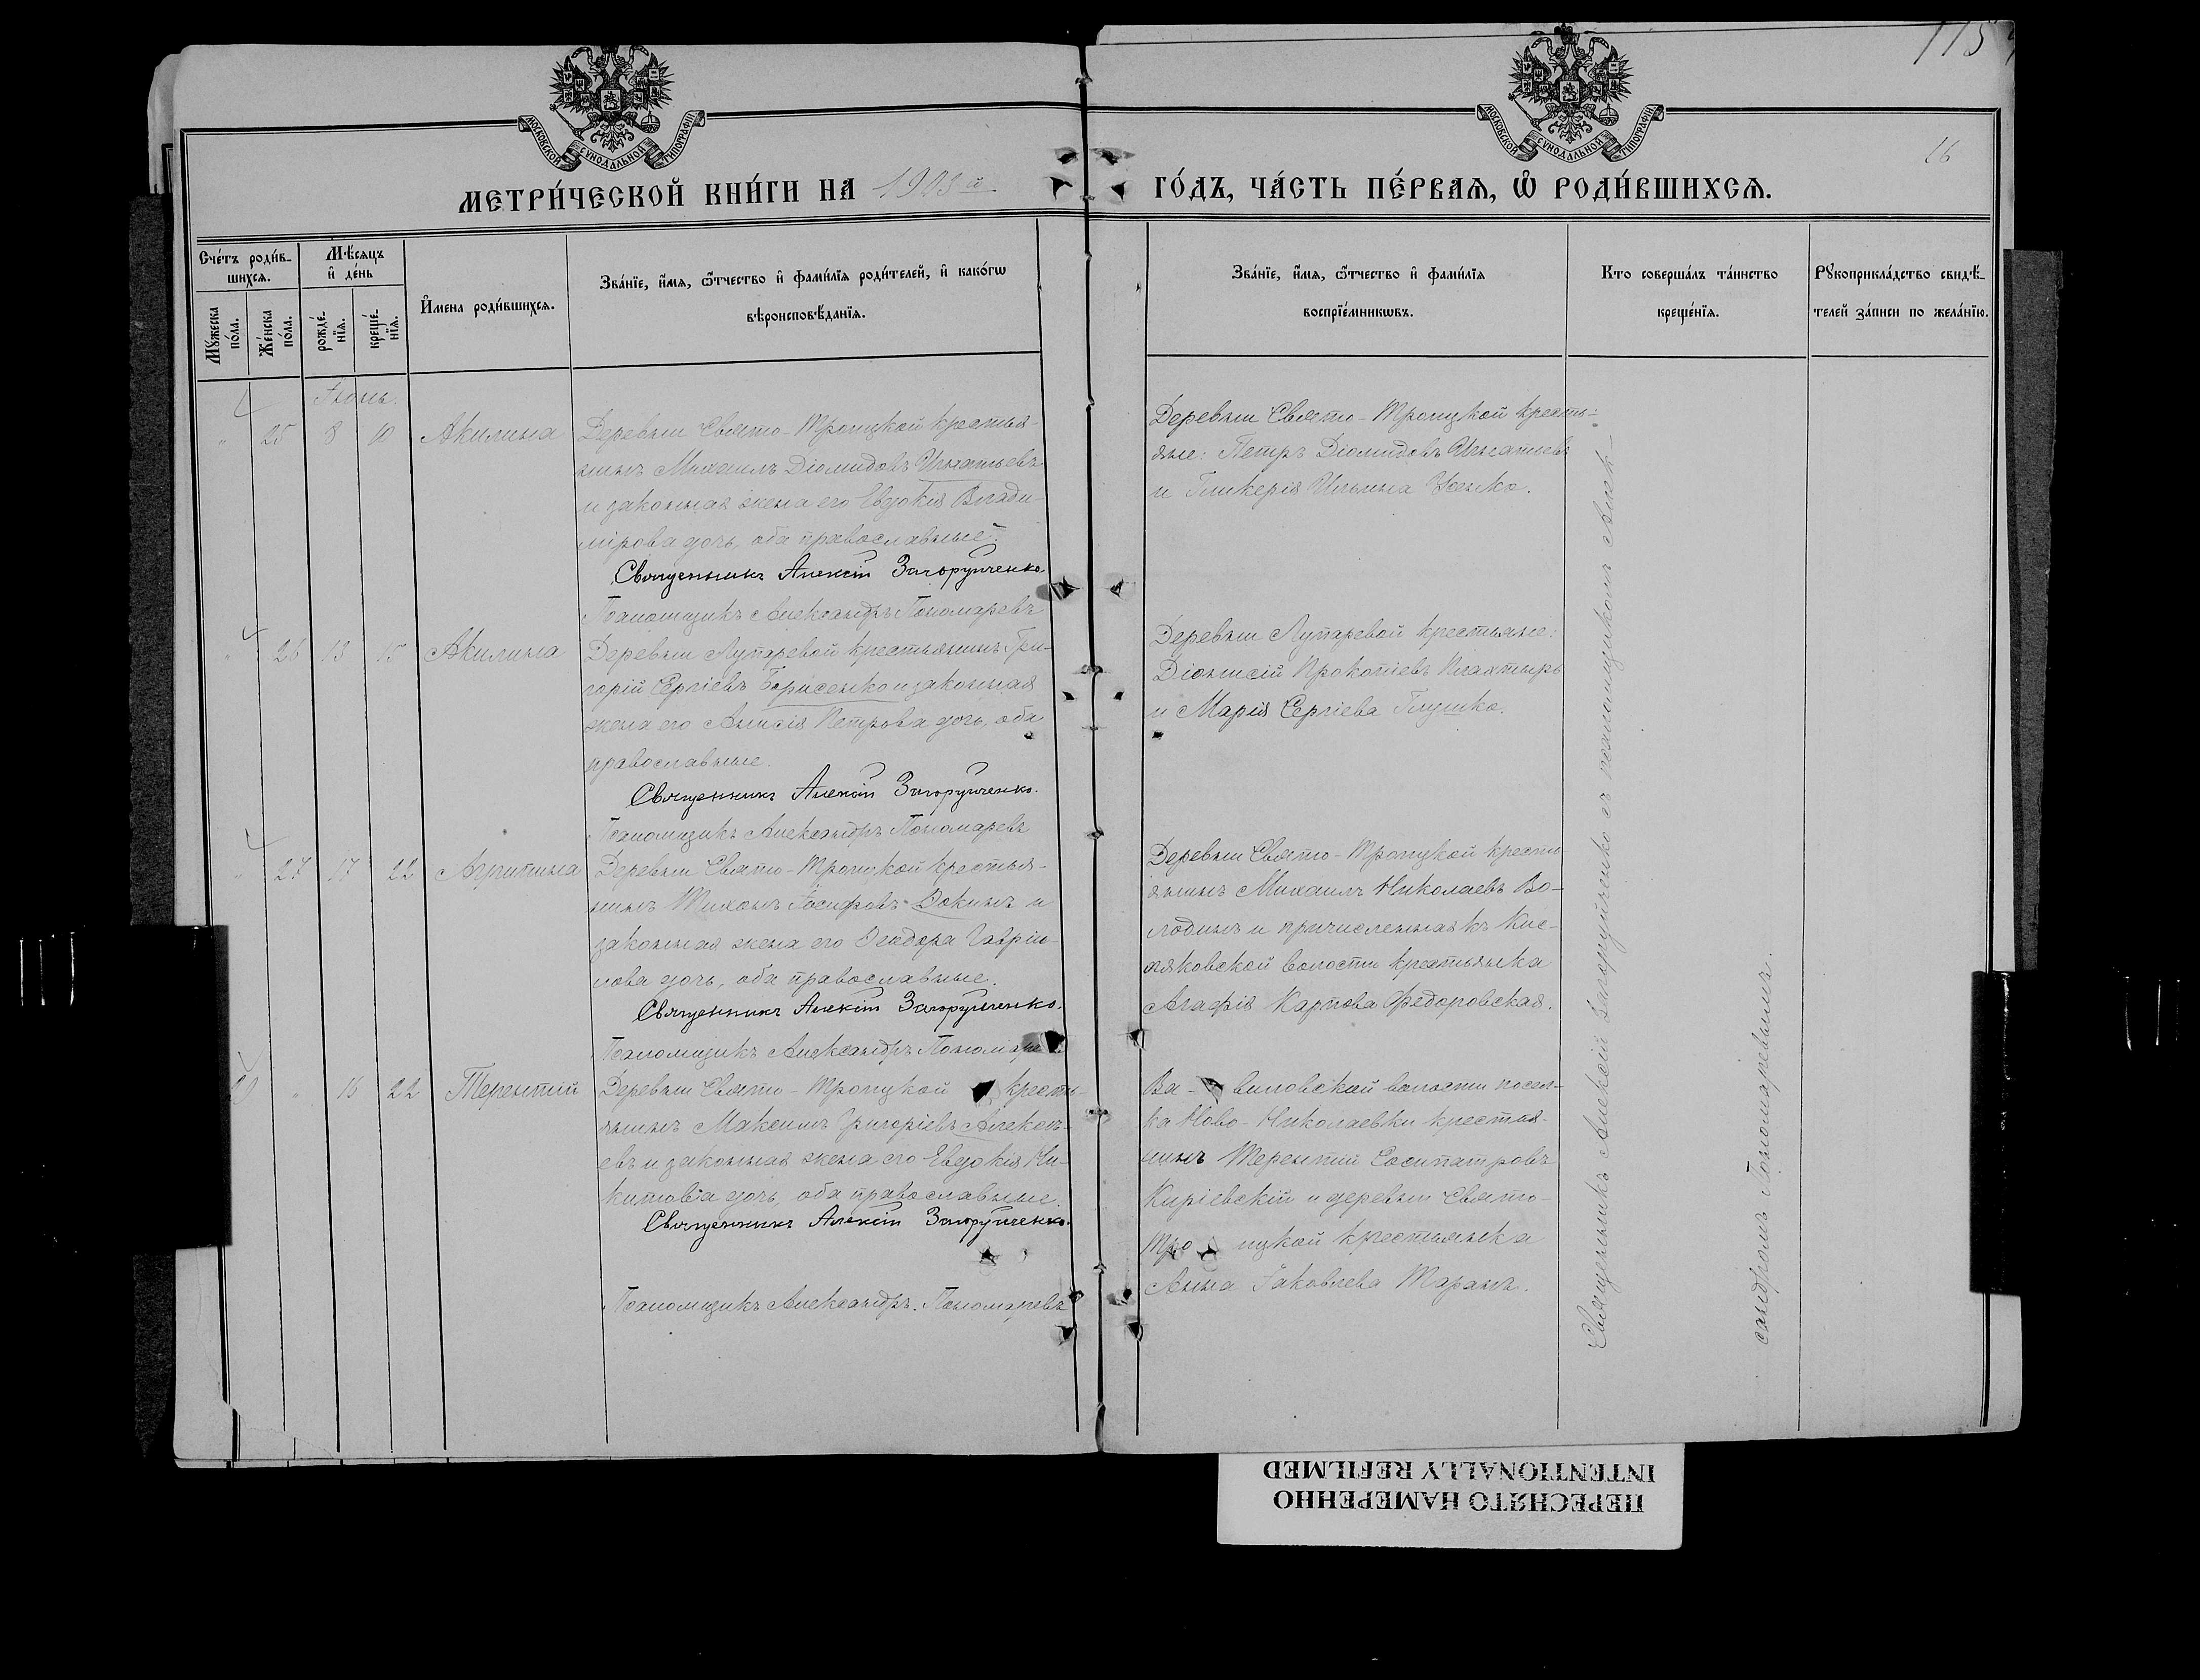 115
16
МОСКОВСКОЙ СѴНОДАЛЬНОЙ ТИПОГРАФІИ
МОСКОВСКОЙ СѴНОДАЛЬНОЙ ТИПОГРАФІИ
МЕТРИ́ЧЕСКОЙ КНИ́ГИ НА 1903 й
ГО́ДЪ, ЧА́СТЬ ПЕ́РВАЯ, Ѿ РОДИ́ВШИХСЯ.
Сче́тъ роди́в-
шихся.
Мꙋжеска по́ла.
Же́нска по́ла.
Мѣ́сяцъ
и҆ де́нь
рожде́-
нїя.
креще́-
нїя.
И҆мена роди́вшихся.
Зва́нїе, и҆́мя, ѻ҆́тчество и҆ фами́лїя роди́телей, и҆ како́гѡ
вѣроисповѣ́данїя.
Зва́нїе, и҆́мя, ѻ҆́тчество и҆ фами́лїя
воспрїе́мникѡвъ.
Кто соверша́лъ та́инство
креще́нїя.
Рꙋкоприкла́дство свидѣ́-
телей за́писи по жела́нїю.
Іюнь.
" 25 8 10 Акилина
Деревни Свято-Троицкой крестья-
нинъ Михаилъ Діомидовъ Игнатьевъ
и законная жена его Евдокія Влади-
мірова дочь, оба православные.
Священникъ Алексій Загоруйченко.
Псаломщикъ Александръ Пономаревъ
Деревни Свято-Троицкой кресть-
яне: Петръ Діомидовъ Игнатьевъ
и Гликерія Ильина
" 26 13 15 Акилина
Деревни Лупаревой крестьянинъ Гри-
горій Сергіевъ Борисенко и законная
жена его Анисія Петрова дочь, оба
православные.
Священникъ Алексій Загоруйченко.
Псаломщикъ Александръ Пономаревъ
Деревни Лупаревой крестьяне:
Діонисій Прокопіевъ Плахтырь
и Марія Сергіева Глушко.
" 27 17 22 Агрипина
Деревни Свято-Троицкой крестья-
нинъ Тихонъ Іосифовъ Докинъ и
законная жена его Ѳеодора Гаврі-
лова дочь, оба православные.
Священникъ Алексій Загоруйченко.
Псаломщикъ Александръ Пономарев
Деревни Свято-Троицкой кресть-
янинъ Михаилъ Николаевъ Во-
лодинъ и причисленная къ Кис-
ляковской волости крестьянка
Агафія Карпова Федоровская.
" 16 22 Терентій
Деревни Свято-Троицкой кресть-
янинъ Максимъ Григоріевъ Алексѣ-
евъ и законная жена его Евдокія Ни-
китова дочь, оба православные.
Священникъ Алексій Загоруйченко.
Псаломщикъ Александръ Пономаревъ
Ва-виловской волости посел-
ка Ново-Николаевки крестья-
нинъ Терентій Сосипатровъ
Киріевскій и деревни Свято-
Троицкой крестьянка
Анна Іаковлева Таранъ.
Священникъ Алексій Загоруйченко съ псаломщикомъ Алек-
сандромъ Пономаревымъ.
ПЕРЕСНЯТО НАМЕРЕННО
INTENTIONALLY REFILMED